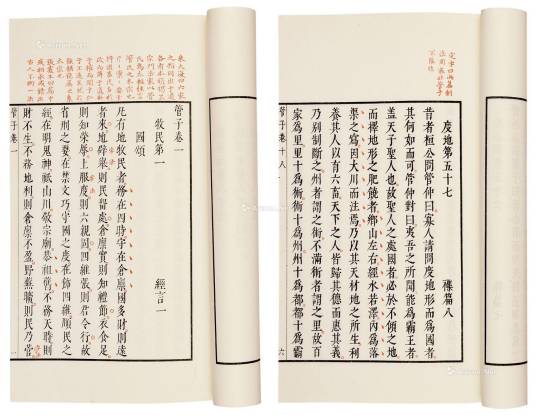 管子卷一
牧民第一 經言一
國頌
凡有地牧民者務在四時守在倉廩國多財則遠
者來地辟舉則民留處倉廩實則知禮節衣食足
則知榮辱上服度則六親固四維張則君令行故
省刑之要在禁文巧守國之度在飾四維順民之
經在明鬼神祇山川敬宗廟恭祖舊不務天時則
財不生不務地利則倉廩不盈野蕪曠則民乃菅
管子卷一 一
度地第五十七 襍篇八
昔者桓公問管仲曰寡人請問度地形而爲國者
其何如而可管仲對曰夷吾之所聞能爲霸王者
蓋天子聖人也故聖人之處國者必於不傾之地
而擇地形之肥饒者鄉山左右經水若澤內爲落
渠之寫因大川而注焉乃以其天材地之所生利
養其人以育六畜天下之人皆歸其德而惠其義
乃別制斷之州者謂之術不滿術者謂之里故百
家爲里里十爲術術十爲州州十爲都都十爲霸
管子卷十八 六